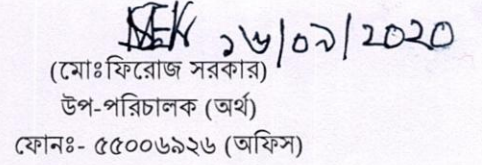 ১৬/০৯/2020
(মোঃফিরোজ সরকার)
উপ-পরিচালক (অর্থ)
ফোনঃ- ৫৫০০৬৯২৬ (অফিস)